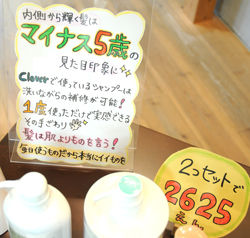 内側から輝く髪は
マイナス5歳の
見た目印象に
Cloverで使っているシャンプーは
洗いながらの補修が可能!
1度使っただけで実感できる
その手ざわり
髪は肌よりものを言う!
毎日使うものだから本当にイイものを
2つセットで
2625